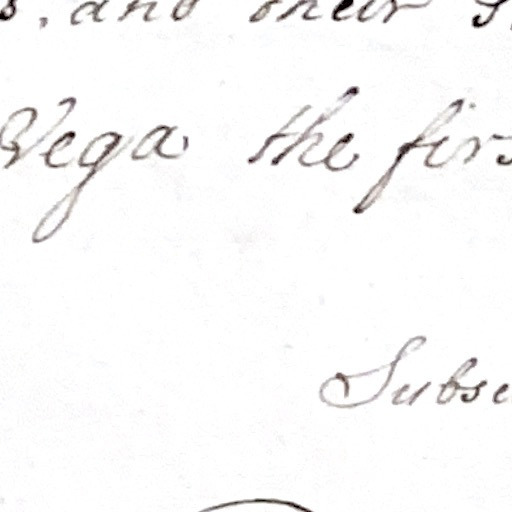 and their
Vega the firs
Subsc